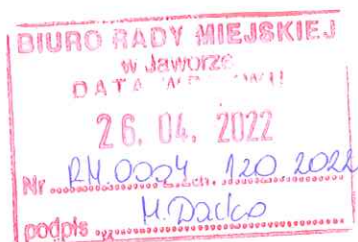 BIURO RADY MIEJSKIEJ
w Jaworze
DATA WPŁYWU
26. 04. 2022
Nr RM.0004.120.2022
podpis M. Dacko